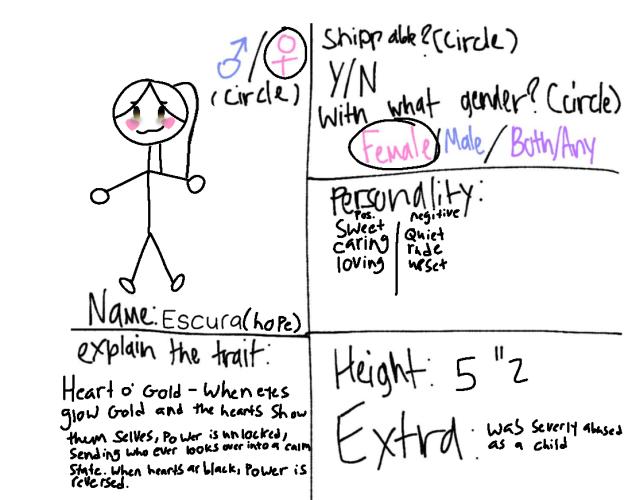 ♂/♀
(circle)
Name: Escura(hope)
explain the trait:
Heart o' Gold - When eyes
glow Gold and the hearts show
them selves, Power is unlocked,
Sending who ever looks over into a calm
State. When hearts ar black, Power is
reversed.
Shippable?(Circle)
Y/N
With what gender?(Circle)
Female/Male/Both/Any
Personality:
Pos. negitive
Sweet Quiet
caring rude
loving upset
Height: 5 "2
Extra: was severly abused
as a child